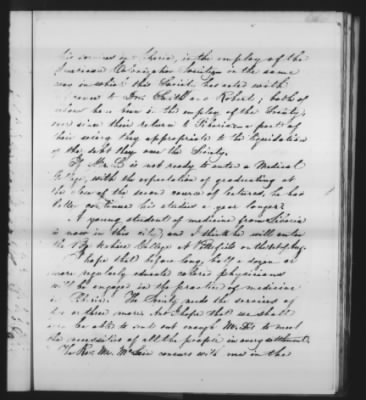 his services in Liberia, in the employ of the
American Colonization Society in the same
way in which this Society has acted with
to Drs. Smith and Roberts; both of
whom have been in the employ of the Society,
ever since their return to Liberia; a part of
their wages they appropriate to the liquidation
of the debt they owe the Society.
If Mr. L is not ready to enter a Medical
College, with the expectation of graduating at
the close of the second course of lectures, he had
better continue his studies a year longer.
A young student of medicine from Liberia
is now in this city, and I think he will enter
the College at Pittsfield on the
I hope that before long, half a dozen or
more regularly educated colored physicians
will be engaged in the practice of medicine
in Liberia. The Society needs the services of
two or three more. And I hope that we shall
soon be able to send out enough M.Ds to meet
the necessities of all the people in every settlement.
The Rev. Mr. McLain concurs with me in the